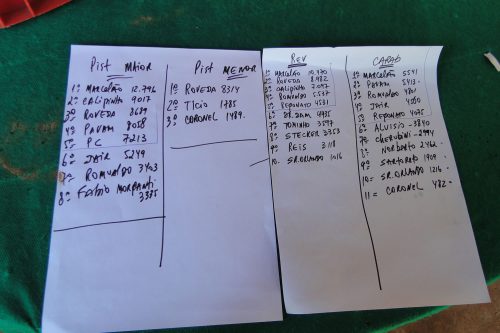 Pist MAIOR
1º MARCELÃO 12.796
2º CALIPINHO 9017
3º ROVEDA 8689
4º PAVAM 8058
5º PC 7213
6º JAIR 5249
7º ROMUALDO 3403
8º FABIO NORBANTI
3335
Pist MENOR
1º ROVEDA 8314
2º TICIO 1785
3º CORONEL 1489
REV
1º MARCELÃO 10.470
ROVEDA 8.482
3º CALIPINHO 7.047
4º ROMUALDO 5537
5º REPONATO 4531
6º 4435
7º TONINHO 3597
8º STECKER 3353
9º REIS 3118
10. SR. ORLANDO 1016
CARAB
1º MARCELÃO 5541
2º PAVAM 5413
3º ROMUALDO
4º JAIR
5º REPONATO 4035
6º ALUISIO - 3840
7º CHERUBINI - 2994
8º NORBANTO 2462
9º SARTORATO 1909
10= SR. ORLANDO 1216
11= CORONEL 482